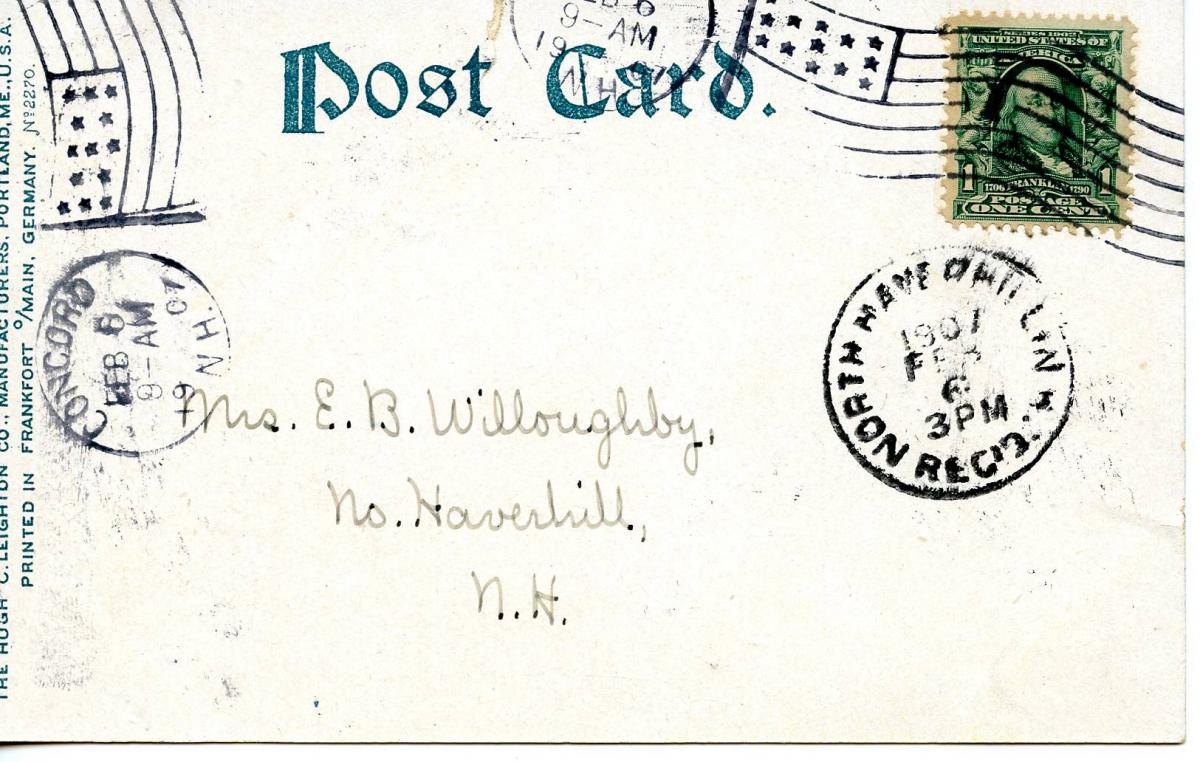 THE HUGH C. LEIGHTON CO., MANUFACTURERS, PORTLAND, ME., U.S.A.
PRINTED IN FRANKFORT O/MAIN, GERMANY. No 2270.
Post Card.
FEB 6
9-AM
19 07
N.H.
SERIES 1902
UNITED STATES OF
AMERICA
1 1706 FRANKLIN 1790 1
POSTAGE
ONE CENT
CONCORD N.H.
FEB 6
9-AM
07
NORTH HAVERHILL N.H.
1907
FEB
6
3PM
REC'D.
Mrs. E. B. Willoughby,
No. Haverhill,
N.H.